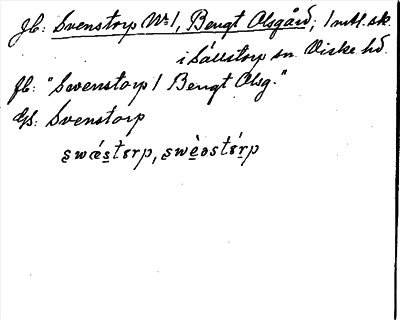 Jb: Svenstorp Nr 1, Bengt Olsgård; 1 mtl. sk.
i Sällstorp sn. Viske hd.
fb: "Swenstorp 1 Bengt Olsg."
Gs: Svenstorp